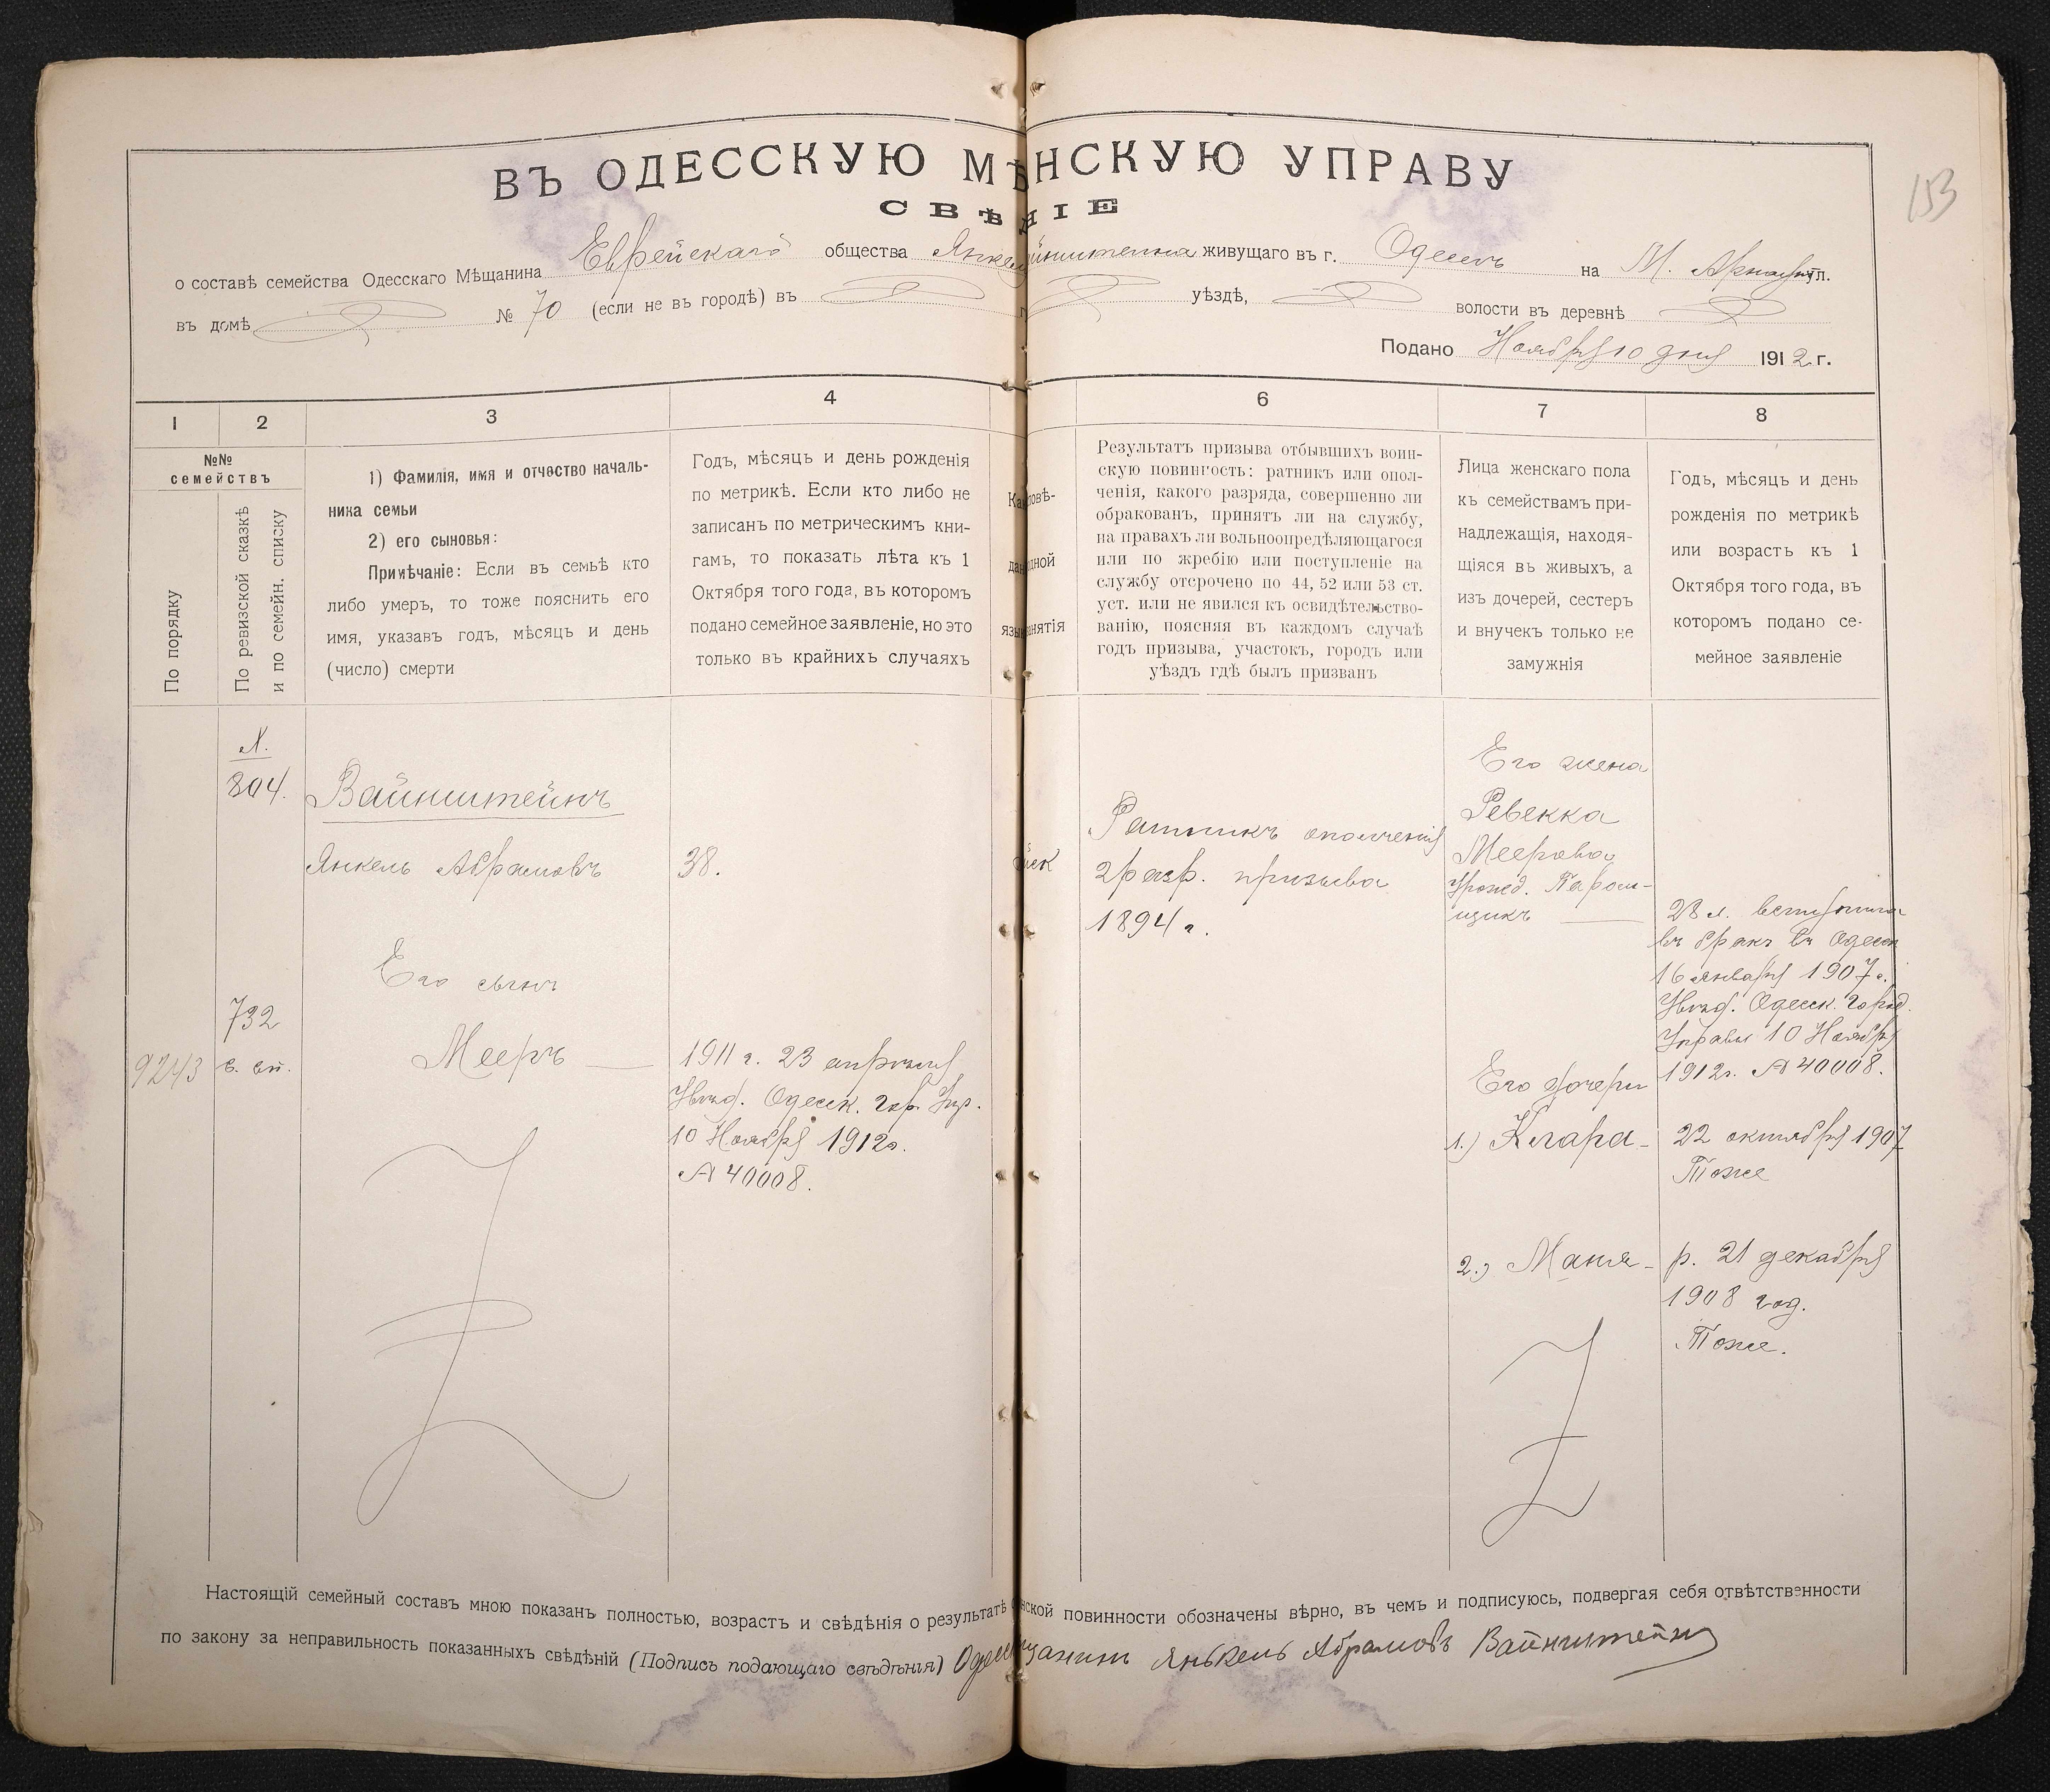 153
ВЪ ОДЕССКУЮ МѢНСКУЮ УПРАВУ
СВѢНІЕ
о составѣ семейства Одесскаго Мѣщанина Еврейскаго общества живущаго въ г. Одессѣ на М. ул.
въ домѣ № 70 (если не въ городѣ) въ уѣздѣ, волости въ деревнѣ
Подано Ноября 10 дня 1912 г.
1
2
3
4
6
7
8
№№
семействъ
По порядку
По ревизской сказкѣ
и по семейн. списку
1) Фамилія, имя и отчество началь-
ника семьи
2) его сыновья:
Примѣчаніе: Если въ семьѣ кто
либо умеръ, то тоже пояснить его
имя, указавъ годъ, мѣсяцъ и день
(число) смерти
Годъ, мѣсяцъ и день рожденія
по метрикѣ. Если кто либо не
записанъ по метрическимъ кни-
гамъ, то показать лѣта къ 1
Октября того года, въ которомъ
подано семейное заявленіе, но это
только въ крайнихъ случаяхъ
Результатъ призыва отбывшихъ воин-
скую повинность: ратникъ или опол-
ченія, какого разряда, совершенно ли
обракованъ, принятъ ли на службу,
на правахъ ли вольноопредѣляющагося
или по жребію или поступленіе на
службу отсрочено по 44, 52 или 53 ст.
уст. или не явился къ освидѣтельство-
ванію, поясняя въ каждомъ случаѣ
годъ призыва, участокъ, городъ или
уѣздъ гдѣ былъ призванъ
Лица женскаго пола
къ семействамъ при-
надлежащія, находя-
щіяся въ живыхъ, а
изъ дочерей, сестеръ
и внучекъ только не
замужнія
Годъ, мѣсяцъ и день
рожденія по метрикѣ
или возрастъ къ 1
Октября того года, въ
которомъ подано се-
мейное заявленіе
№.
804.
Вайнштейнъ
Янкель Абрамовъ
38.
Ратникъ ополченія
2 разр. призыва
1894 г.
Его жена
Ревекка
Меерова
Урожд. Паром-
щикъ
28 л. вступила
въ бракъ въ Одессѣ
16 января 1907 г.
Удост. Одесск. Город.
Управы 10 Ноября
1912 г. № 40008.
Его сынъ
732
9243
Мееръ
1911 г. 23 апрѣля
Удост. Одесск. гор. Упр.
10 Ноября 1912 г.
№ 40008.
Его дочери
1.) Клара - 22 октября 1907
Тоже
2.) Маня - р. 21 декабря
1908 год.
Тоже.
Настоящій семейный составъ мною показанъ полностью, возрастъ и свѣдѣнія о результатѣ нской повинности обозначены вѣрно, въ чемъ и подписуюсь, подвергая себя отвѣтственности
по закону за неправильность показанныхъ свѣдѣній (Подпись подающаго свѣдѣнія) Янькель Абрамовъ Вайнштейнъ